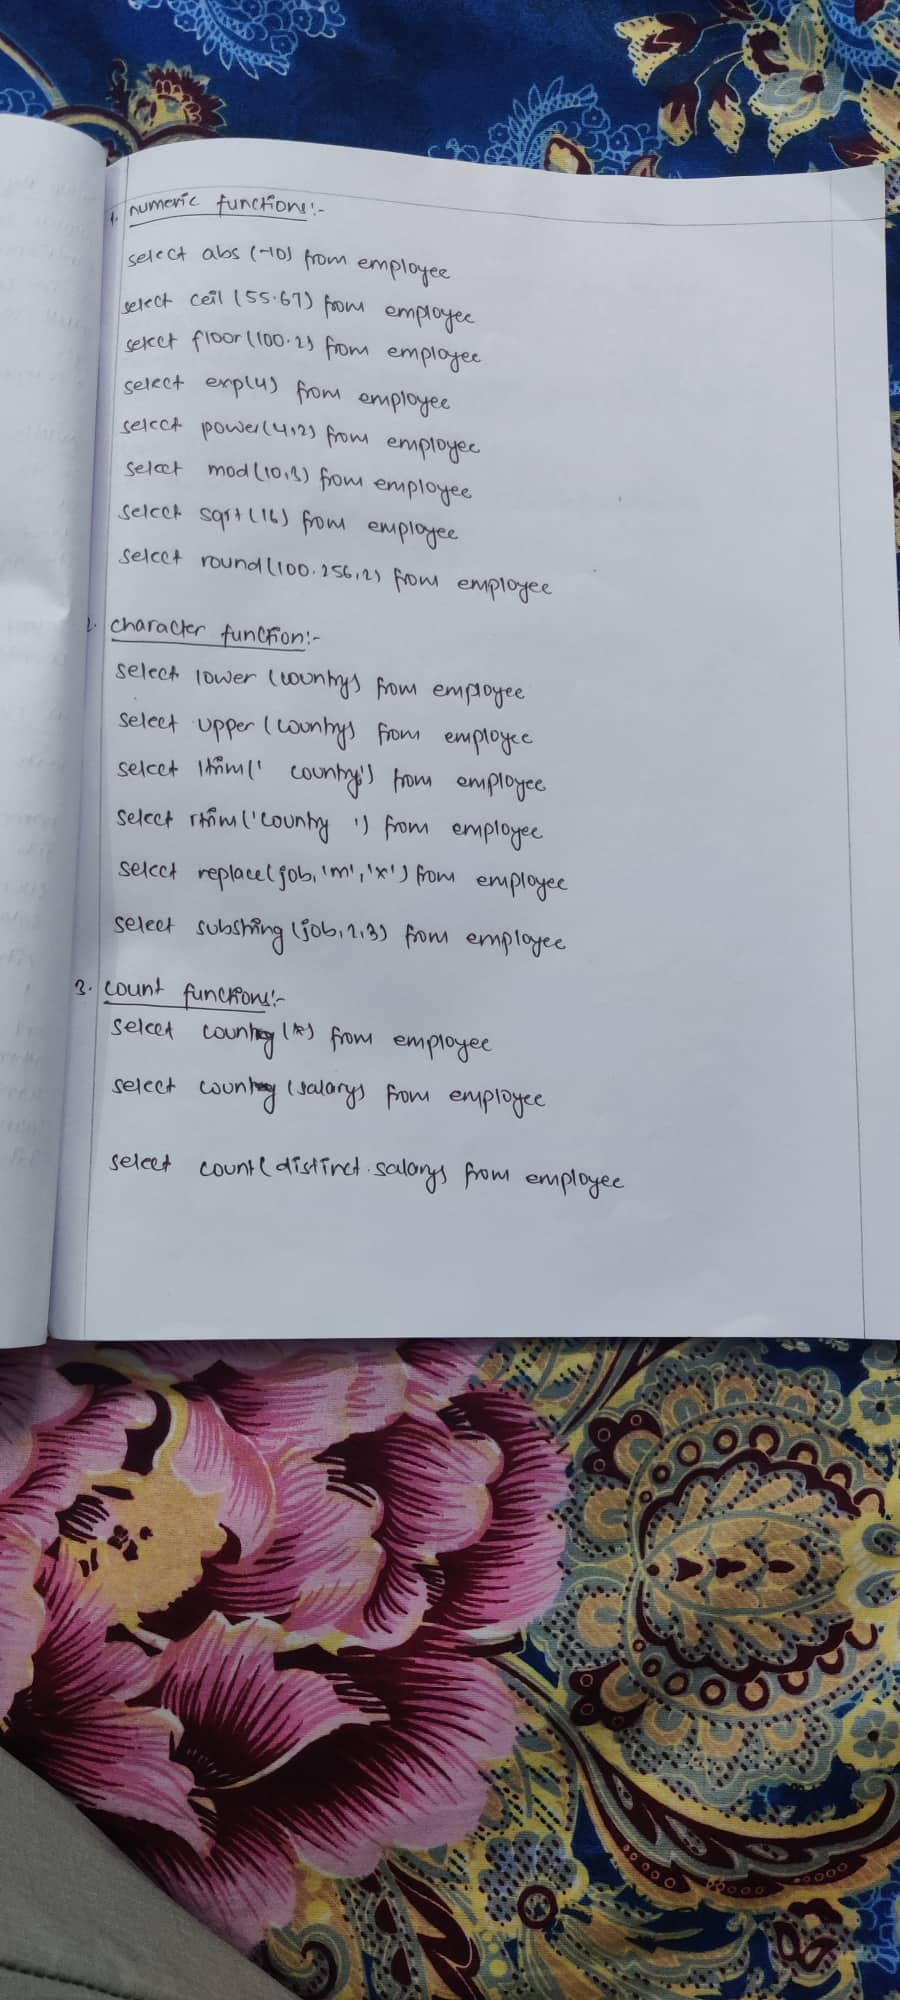 1. numeric functions:-
select abs (-10) from employee
select ceil (55.67) from employee
select floor (100.2) from employee
select exp(4) from employee
select power(4,2) from employee
select mod (10,3) from employee
select sqrt (16) from employee
select round (100.256,2) from employee
2. character function:-
select lower (country) from employee
select upper (country) from employee
select ltrim(' country') from employee
select rtrim('country ') from employee
select replace(job,'m','x') from employee
select substring (job,2,3) from employee
3. count functions:-
select count (*) from employee
select count (salary) from employee
select count(distinct salary) from employee